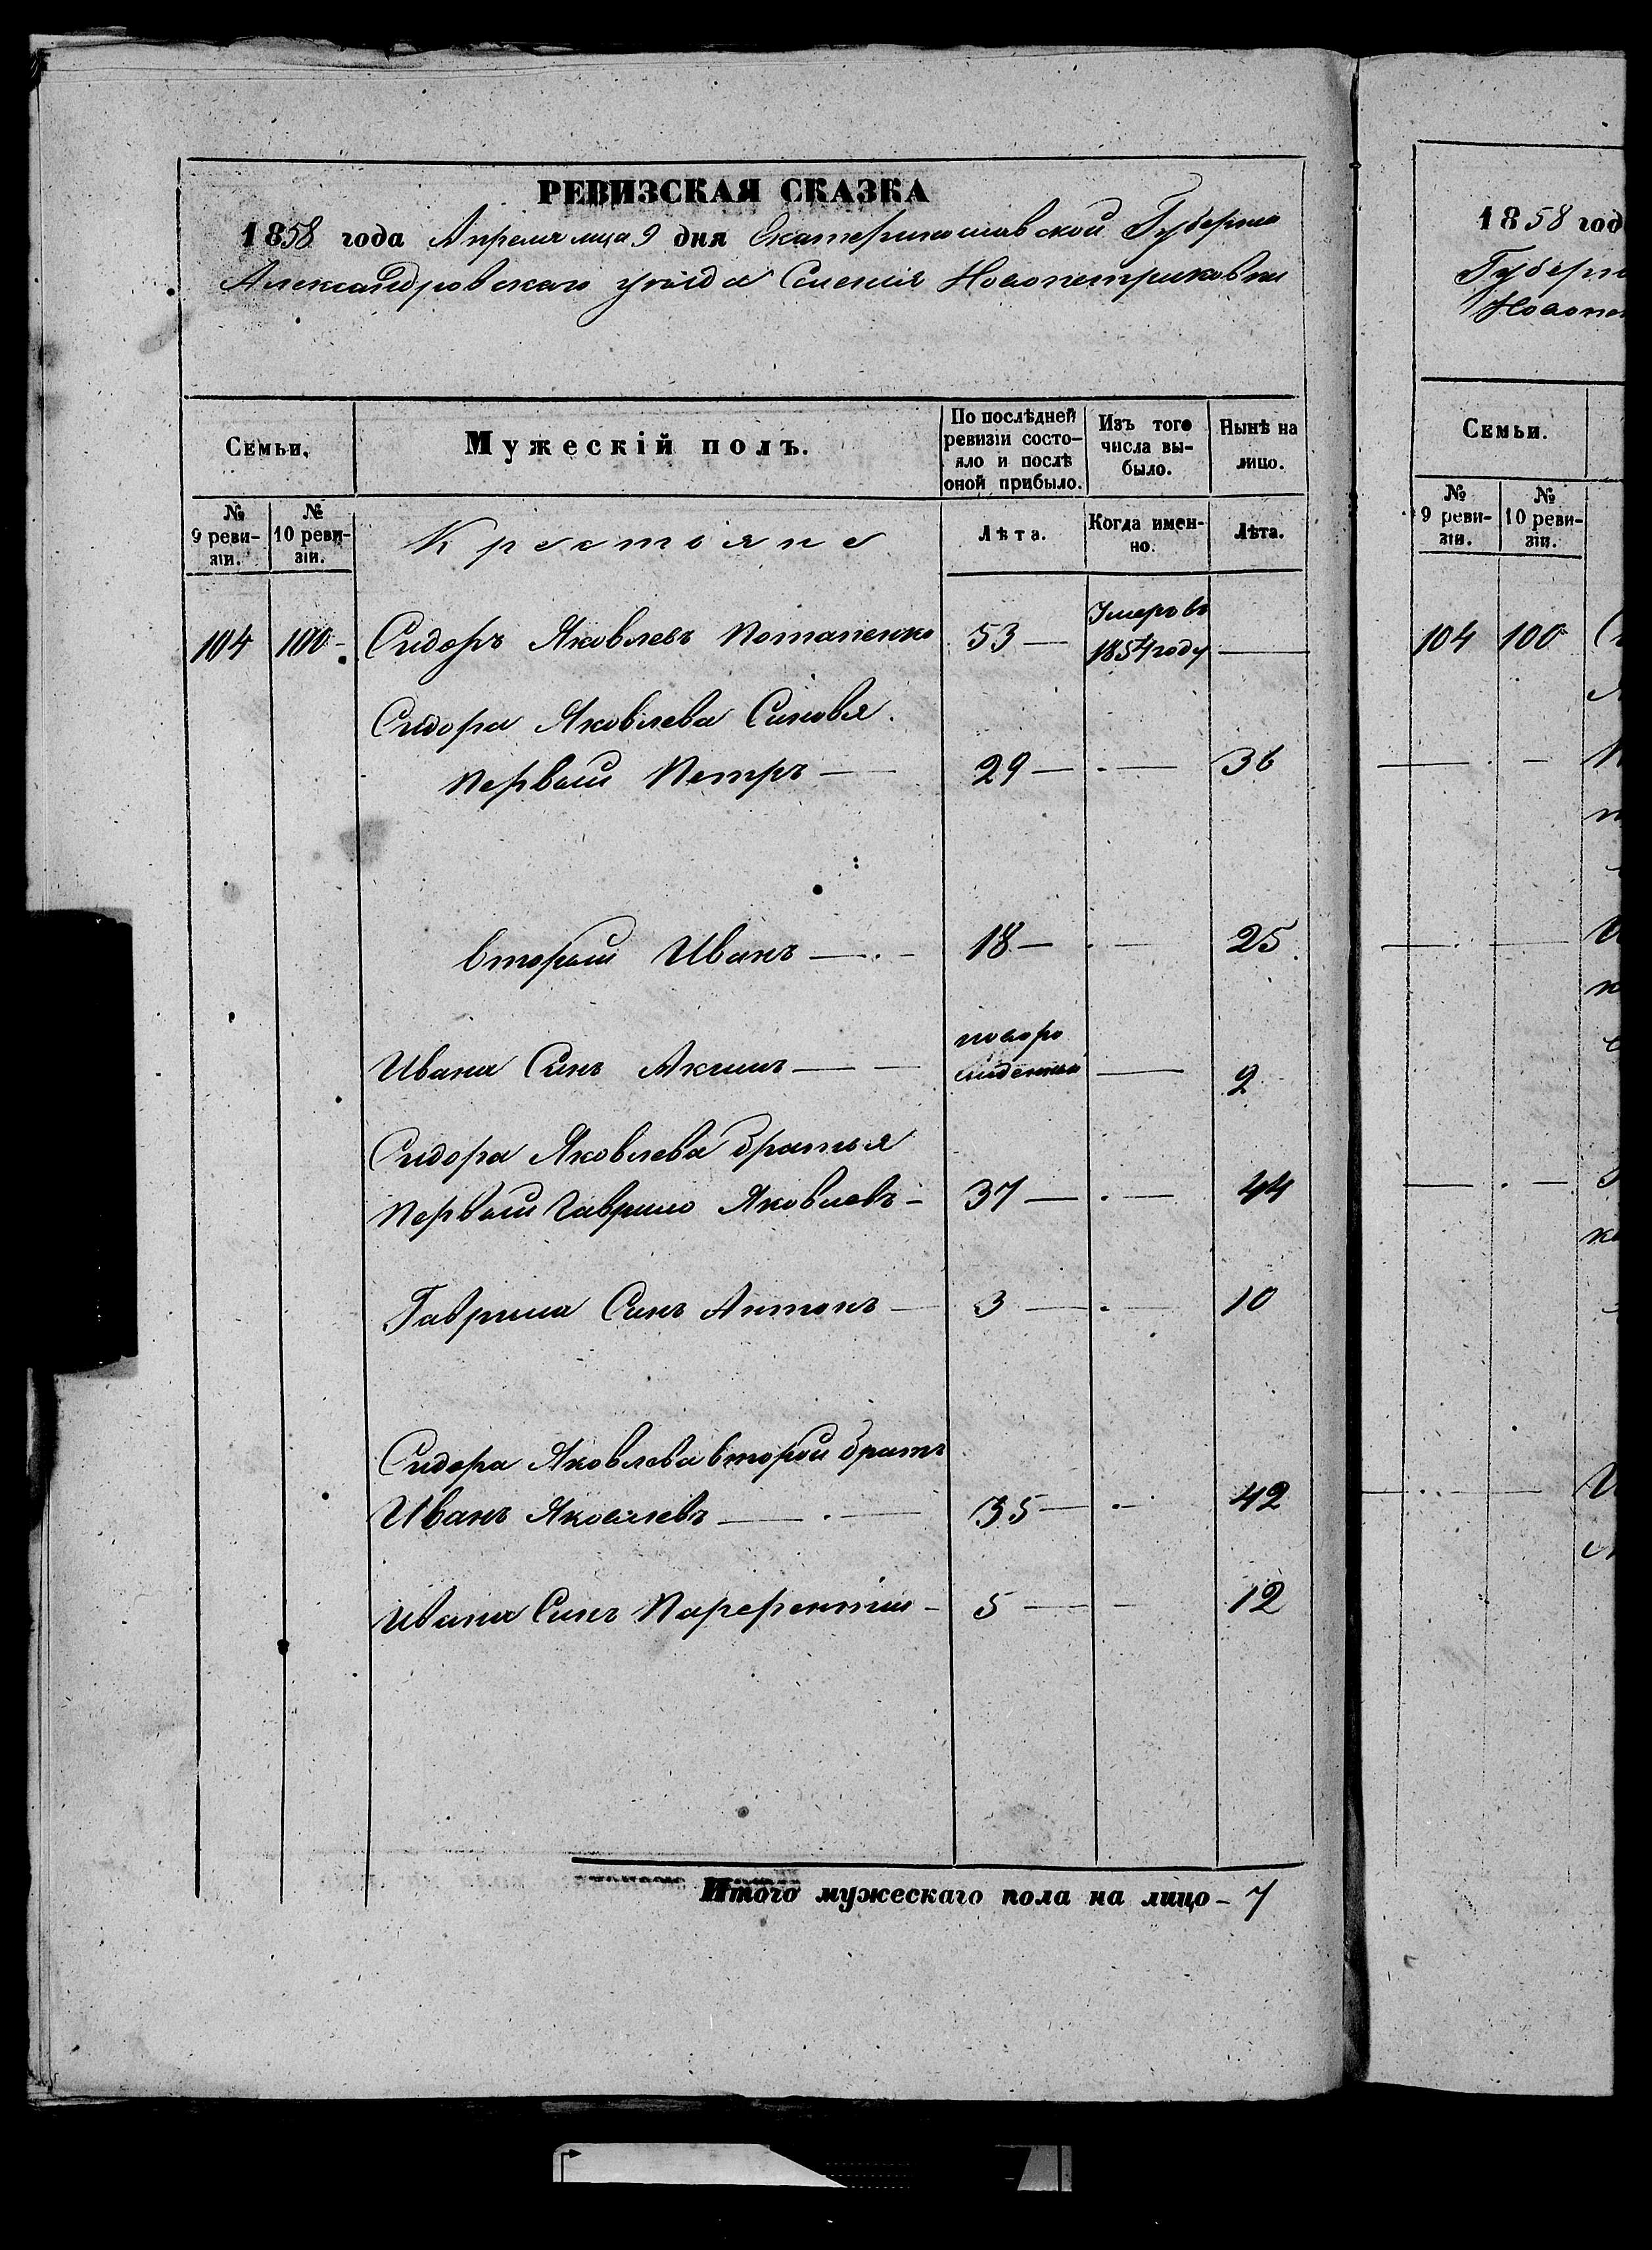 РЕВИЗСКАЯ СКАЗКА
1858 года Апреля мца 9 дня Екатеринославской Губернии
Александровскаго уезда Селения Новопетриковки
Семьи.
Мужескій полъ.
По послѣдней ревизіи состо-
яло и послѣ оной прибыло.
Изъ того числа вы-
было.
Нынѣ на лицо.
№ 9 реви-
зіи.
№ 10 реви-
зіи.
Крестьяне
Лѣта.
Когда имен-
но.
Лѣта.
104 100 - Сидоръ Яковлевъ Потапенко 53 — Умеръ въ 1854 году —
Сидора Яковлева Синовя.
Первый Петръ — 29 — - — 36
вторый Иванъ — 18 — - — 25
Ивана Синъ Акимъ — новоро
жденный — 2
Сидора Яковлева братья
Первый Гаврило Яковлевъ - 37 — - — 44
Гаврила Синъ Антонъ — 3 — - — 10
Сидора Яковлева вторый братъ
Иванъ Яковлевъ — 35 — - — 42
Ивана Синъ Парфентий - 5 — — 12
Итого мужескаго пола на лицо - 7
1858 год
Губерн
Новопе
Семьи.
№ 9 реви-
зіи.
№ 10 реви-
зіи.
104 100